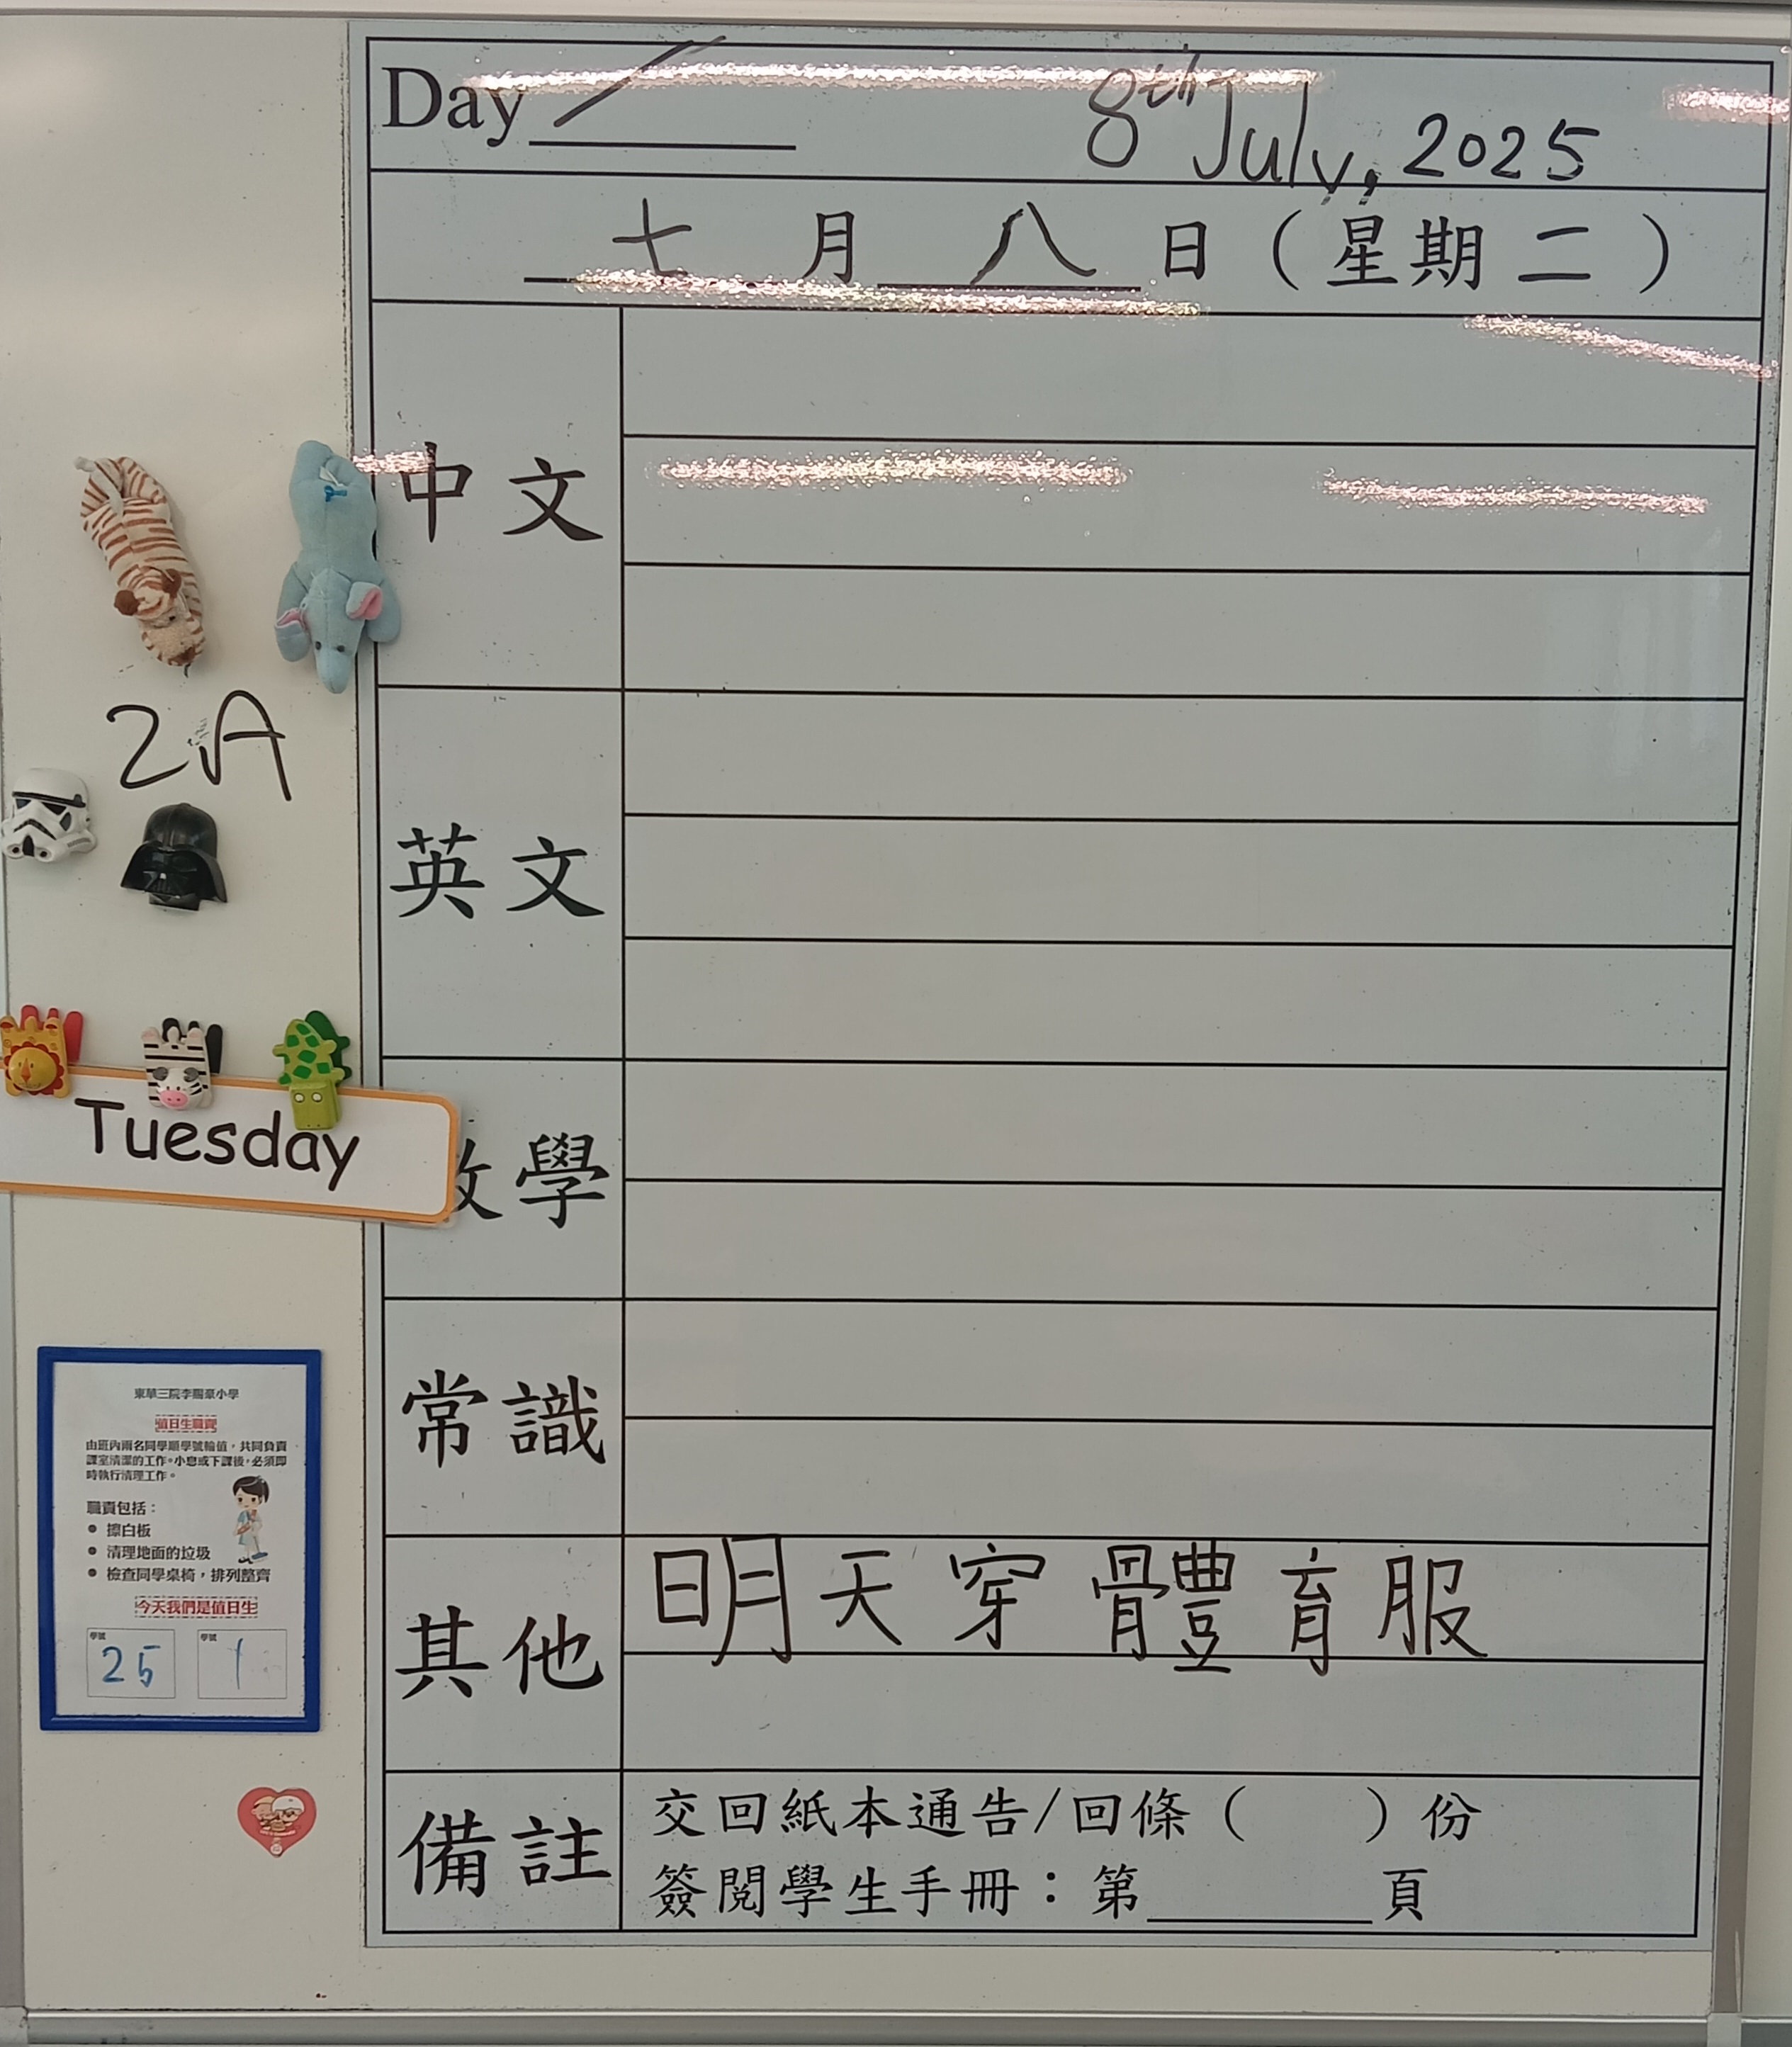 Day / 8th July, 2025
七 月 八 日 ( 星期二 )
中文
2A
英文
Tuesday
數學
常識
東華三院李賜豪小學
值日生職責
由班內兩名同學順學號輪值，共同負責
課室清潔的工作。小息或下課後，必須即
時執行清理工作。
職責包括：
• 擦白板
• 清理地面的垃圾
• 檢查同學桌椅，排列整齊
今天我們是值日生
學號 學號
25 1
其他 明天穿體育服
備註 交回紙本通告/回條 ( ) 份
簽閱學生手冊：第______頁